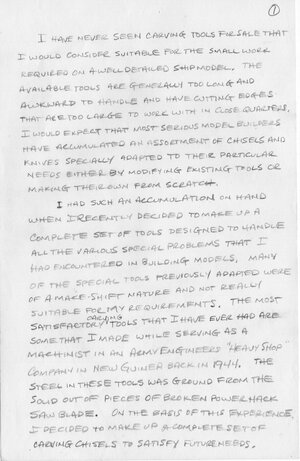 1
I HAVE NEVER SEEN CARVING TOOLS FOR SALE THAT
I WOULD CONSIDER SUITABLE FOR THE SMALL WORK
REQUIRED ON A WELL DETAILED SHIP MODEL. THE
AVAILABLE TOOLS ARE GENERALLY TOO LONG AND
AWKWARD TO HANDLE AND HAVE CUTTING EDGES
THAT ARE TOO LARGE TO WORK WITH IN CLOSE QUARTERS.
I WOULD EXPECT THAT MOST SERIOUS MODEL BUILDERS
HAVE ACCUMULATED AN ASSORTMENT OF CHISELS AND
KNIVES SPECIALLY ADAPTED TO THEIR PARTICULAR
NEEDS EITHER BY MODIFYING EXISTING TOOLS OR
MAKING THEIR OWN FROM SCRATCH.
I HAD SUCH AN ACCUMULATION ON HAND
WHEN I RECENTLY DECIDED TO MAKE UP A
COMPLETE SET OF TOOLS DESIGNED TO HANDLE
ALL THE VARIOUS SPECIAL PROBLEMS THAT I
HAD ENCOUNTERED IN BUILDING MODELS. MANY
OF THE SPECIAL TOOLS PREVIOUSLY ADAPTED WERE
OF A MAKE-SHIFT NATURE AND NOT REALLY
SUITABLE FOR MY REQUIREMENTS. THE MOST
SATISFACTORY CARVING TOOLS THAT I HAVE EVER HAD ARE
SOME THAT I MADE WHILE SERVING AS A
MACHINIST IN AN ARMY ENGINEERS "HEAVY SHOP"
COMPANY IN NEW GUINEA BACK IN 1944. THE
STEEL IN THESE TOOLS WAS GROUND FROM THE
SOLID OUT OF PIECES OF BROKEN POWER HACK
SAW BLADE. ON THE BASIS OF THIS EXPERIENCE,
I DECIDED TO MAKE UP A COMPLETE SET OF
CARVING CHISELS TO SATISFY FUTURE NEEDS.